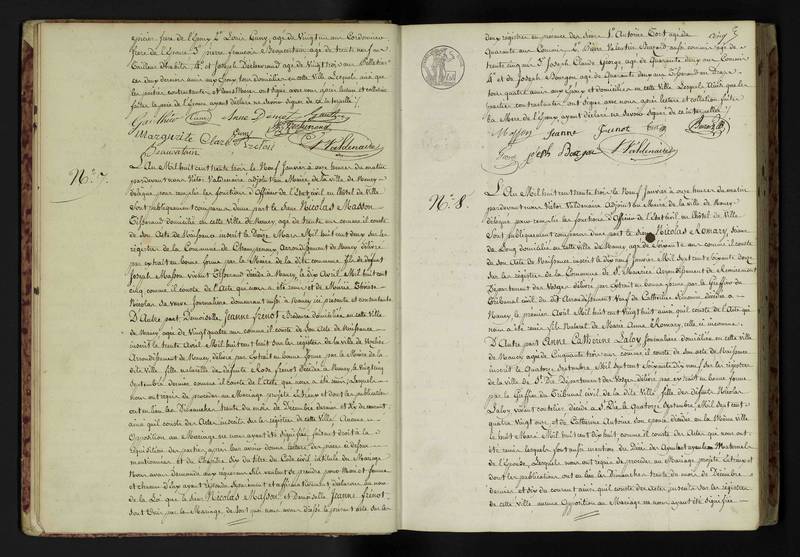 épicier frère de l'Epoux 2° Louis Cuny, agé de Vingt huit ans Cordonnier
frère de l'Epouse 3° pierre françois Beauvertain agé de trente neuf ans
4° et Joseph agé de Vingt trois ans
ces deux derniers amis aux Epoux tous domiciliés en cette Ville Lesquels ainsi que
les parties contractantes et ont signé avec nous après lecture et collation
faite la père de l'Epouse ayant déclaré ne savoir signer de ce interpellé
Gauthier Cuny Anne
Marguerite Clare Cuny
Beauvertain Valdenaire
N.° 7.
L'An Mil huit cent trente trois le Neuf Janvier à onze heures du matin
pardevant nous Victor Valdenaire adjoint au Maire de la ville de Nancy
délégué pour remplir les fonctions d'Officier de l'Etat civil en l'hôtel de Ville
Sont publiquement comparus d'une part le sieur Nicolas Masson
domicilié en cette Ville de Nancy, agé de trente un ans comme il conste
de son Acte de Naissance inscrit le Mars Mil huit cent deux sur les
registres de la Commune de Champenoux Arrondissement de Nancy délivré
par extrait en bonne forme par le Maire de la dite commune fils de défunt
Joseph Masson vivant décédé à Nancy le dix Avril Mil huit cent
cinq comme il conste de l'Acte qui nous a été remis et de Marie Thérèse
Nicolas sa veuve Journalière demeurant aussi à Nancy ici présente et consentante
D'Autre part Demoiselle Jeanne Frénot Brodeuse domiciliée en cette Ville
de Nancy, agée de Vingt quatre ans comme il conste de son Acte de Naissance
inscrit le trente Avril Mil huit cent huit sur les registres de la ville de
Arrondissement de Nancy délivré par Extrait en bonne forme par le Maire de la
dite Ville fille naturelle de défunte Rose Frénot décédée à Nancy le Vingt cinq
Septembre dernier comme il conste de l'Acte qui nous a été remis, Lesquels
nous ont requis de procéder au Mariage projeté entre eux et dont les publications
ont eu lieu les Dimanches trente du mois de Décembre dernier et six du courant
ainsi qu'il conste des Actes inscrits sur les registres de cette Ville, Aucune
Opposition au Mariage ne nous ayant été signifiée, faisant droit à la
réquisition des parties, après leur avoir donné lecture des pièces ci dessus
mentionnées et du Chapitre Six du titre du Code civil intitulé du Mariage
Nous avons demandé aux requérans s'ils veulent se prendre pour Mari et femme
et chacun d'eux ayant répondu séparément et affirmativement déclarons au nom
de la Loi que le Sieur Nicolas Masson et Demoiselle Jeanne Frénot
sont Unis par le Mariage, de tout quoi nous avons dressé le présent acte sur les
deux registres en présence des Sieurs 1° Antoine Tort agé de
quarante ans Cousin 2° Pierre Valentin Bazard aussi cousin agé de
trente cinq ans 3° Joseph Claude George agé de quarante deux ans Cousin
4° et de Joseph Bourgon agé de quarante deux ans
tous quatre amis aux Epoux et domiciliés en cette ville Lesquels Ainsi que les
parties contractantes ont signé avec nous après lecture et collation faite
la Mère de l'Epoux ayant déclaré ne savoir signer de ce interpellée
Masson Jeanne Frenot
Joseph Valdenaire
N.° 8.
L'An Mil huit cent trente trois le Neuf Janvier à onze heures du matin
pardevant nous Victor Valdenaire Adjoint au Maire de la ville de Nancy
délégué pour remplir les fonctions d'Officier de l'Etat civil en l'hôtel de Ville
Sont publiquement comparus d'une part le Sieur Nicolas Romary,
de Long domicilié en cette ville de Nancy, agé de Soixante un ans comme il conste
de son Acte de Naissance inscrit le dix neuf Janvier Mil sept cent soixante douze
sur les registres de la Commune de St Maurice Arrondissement de Remiremont
Département des Vosges délivré par Extrait en bonne forme par le Greffier du
Tribunal civil du dit Arrondissement Veuf de Catherine décédée à
Nancy le premier Avril Mil huit cent Vingt huit ainsi qu'il conste de l'Acte qui
nous a été remis fils Naturel de Marie Anne Romary, celle ci inconnue.
D'Autre part Anne Catherine Laloy Journalière domiciliée en cette ville
de Nancy agée de Cinquante trois ans comme il conste de son acte de Naissance
inscrit le Quatorze Septembre Mil Sept cent Soixante dix neuf sur les registres
de la ville de St Dié Département des Vosges délivré par extrait en bonne forme
par le Greffier du Tribunal civil de la dite Ville fille des défunts Nicolas
Laloy vivant coutelier décédé à St Dié le Quatorze Septembre Mil Sept cent
quatre Vingt onze, et de Catherine Antoine son épouse décédée en la Même ville
le huit Mars Mil huit cent dix huit comme il conste des Actes qui nous ont
été remis lesquels font aussi mention du Décès des Ayeulx et ayeules Maternels
de l'Epouse, Lesquels nous ont requis de procéder au Mariage projeté Entre eux et
dont les publications ont eu lieu les Dimanches trente du mois de Décembre
dernier et Six du courant ainsi qu'il conste des Actes inscrits sur les registres
de cette ville, aucune Opposition au Mariage ne nous ayant été signifiée